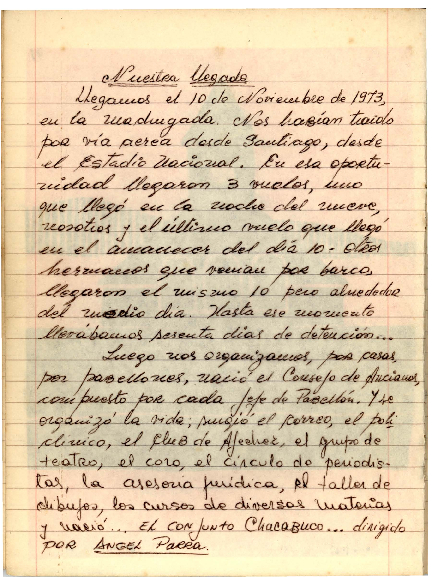 Nuestra llegada
Llegamos el 10 de Noviembre de 1973,
en la madrugada. Nos habían traido
por vía aerea desde Santiago, desde
el Estadio Nacional. En esa oportu-
nidad llegaron 3 vuelos, uno
que llegó en la noche del nueve,
nosotros y el último vuelo que llegó
en el amanecer del día 10 - Otros
hermanos que venían por barco,
llegaron el mismo 10 pero alrededor
del medio día. Hasta ese momento
llevábamos sesenta días de detención...
Luego nos organizamos, por casas,
por pabellones, nació el Consejo de Ancianos,
compuesto por cada jefe de Pabellón. Y se
organizó la vida; surgió el correo, el poli
clínico, el Club de Ajedrez, el grupo de
teatro, el coro, el círculo de periodis-
tas, la asesoría jurídica, el taller de
dibujos, los cursos de diversas materias
y nació... EL CONJUNTO CHACABUCO... dirigido
POR ANGEL PARRA.